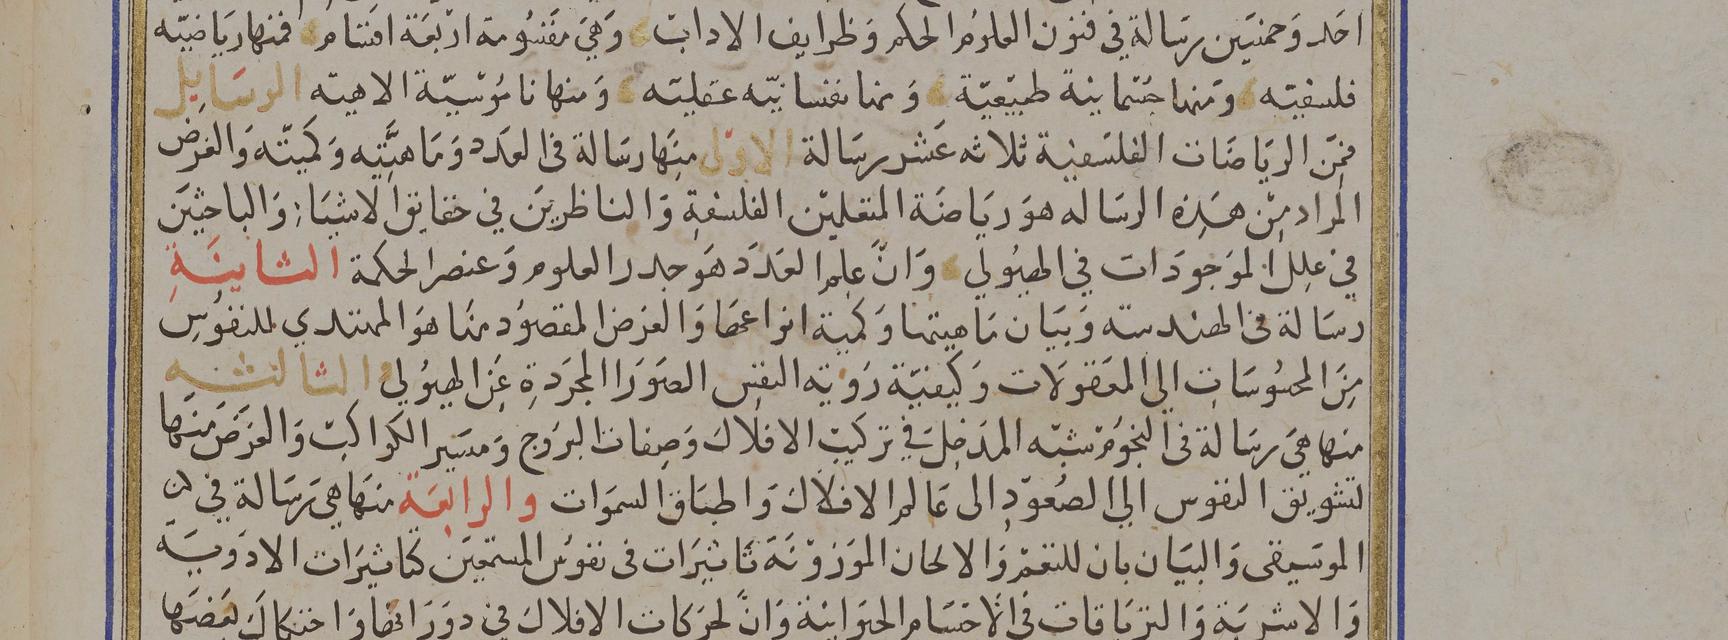 احد وخمسين رسالة في فنون العلوم الحكم وظرايف الاداب وهي مقسومة اربعة اقسام فمنها رياضيّه
فلسفيّه ومنها جسْمَانية طبيْعيّة ومنها نفسانيّه عقليّه ومنها نامُوْسيّة الاهيّه الرسَايل
فمن الريَاضَات الفلسَفيّة ثلاثه عَشر رسَالة الاوّل منهَا رسَالة فى العَدد ومَاهيَّتِه وكميّته وَالغرض
المراد مِن هذه الرسَاله هوَ ريَاضَة المتعَلمين الفلسَفةِ وَالناظريَن في حقايق الاشيَاء وَالباحثيَن
في علِل الموَجودَات في الهيُولي وَانّ علم العَدَد هَو جدر العلوم وَعنصر الحكمة الثانيَةِ
رسَالة فى الهندسَه وَبيَان مَاهيتها وَكمية انواعها وَالغَرض المقصوُد منها هوَ المهتدي للنفوُس
مِنَ المحسُوسَات الي المعَقولَات وَكيفيّة رَوية النفس الصَورَا المجَردةِ عَن الهيُولي الثالثه
منها هيَ رسَالة فى النجوُم شبْه المدَخل في تركيب الافلاك وَصفات البروج وَمسَير الكواكب وَالغرَض منهَا
لتشويق النفوس الي الصُعوُد الى عَالم الافلاك وَاطباق السموَات والرابعَة منهَا هيَ رسَالة في
الموسَيقى وَالبيَان بان للنغم وَالالحان الموَزوْنَة تَاثيرَات فى نفوُس المستمعيَن كتاثيرَات الادَويَة
وَالاشربَة وَالتريَاقات فى الاجسَام الحيوَانية وَانّ لحرَكات الافلاك في دوَرَانها وَاحتكاك بَعضهَا